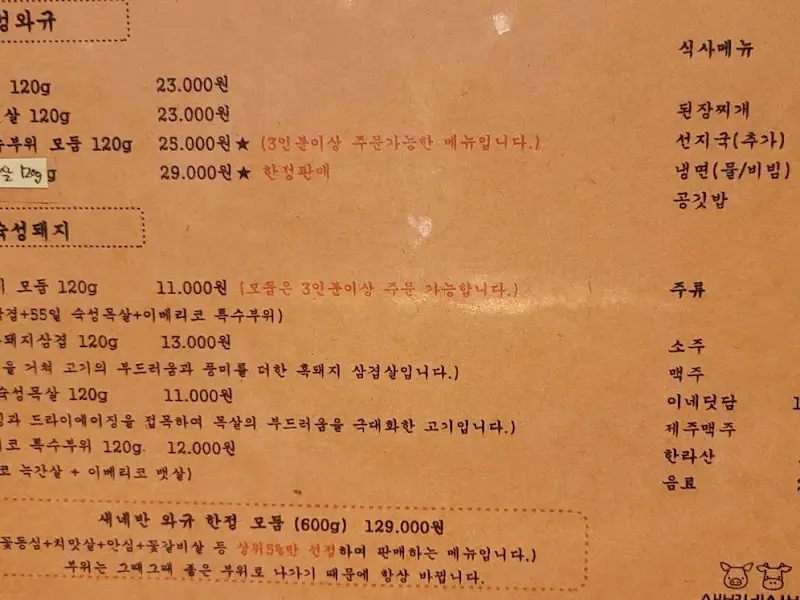 와규
120g 23.000원
살 120g 23.000원
수부위 모듬 120g 25.000원★ (3인분이상 주문가능한 메뉴입니다.)
살 120g g 29.000원★ 한정판매
숙성돼지
모듬 120g 11.000원 (모듬은 3인분이상 주문 가능합니다.)
겹+55일 숙성목살+이베리코 특수부위)
돼지삼겹 120g 13.000원
을 거쳐 고기의 부드러움과 풍미를 더한 흑돼지 삼겹살입니다.)
숙성목살 120g 11.000원
과 드라이에이징을 접목하여 목살의 부드러움을 극대화한 고기입니다.)
코 특수부위 120g 12.000원
코 늑간살 + 이베리코 뱃살)
새네반 와규 한정 모듬 (600g) 129.000원
꽃등심+치맛살+안심+꽃갈비살 등 상위5%만 선정하여 판매하는 메뉴입니다.)
부위는 그때그때 좋은 부위로 나가기 때문에 항상 바뀝니다.
식사메뉴
된장찌개
선지국(추가)
냉면(물/비빔)
공깃밥
주류
소주
맥주
이네딧담
제주맥주
한라산
음료